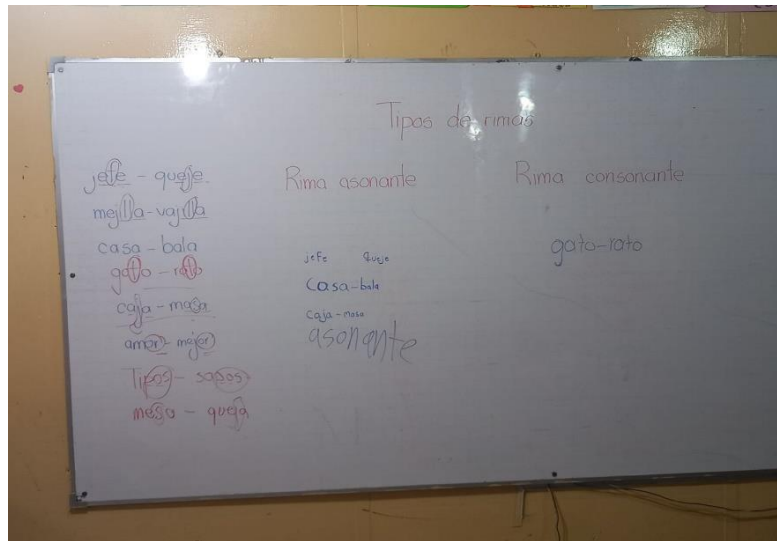 Tipos de rimas
jefe - queje
mejilla-vajilla
casa - bala
gato - rato
caja - masa
amor - mejor
Tipos - sapos
mesa - queja
Rima asonante
jefe queje
Casa-bala
caja-masa
asonante
Rima consonante
gato-rato